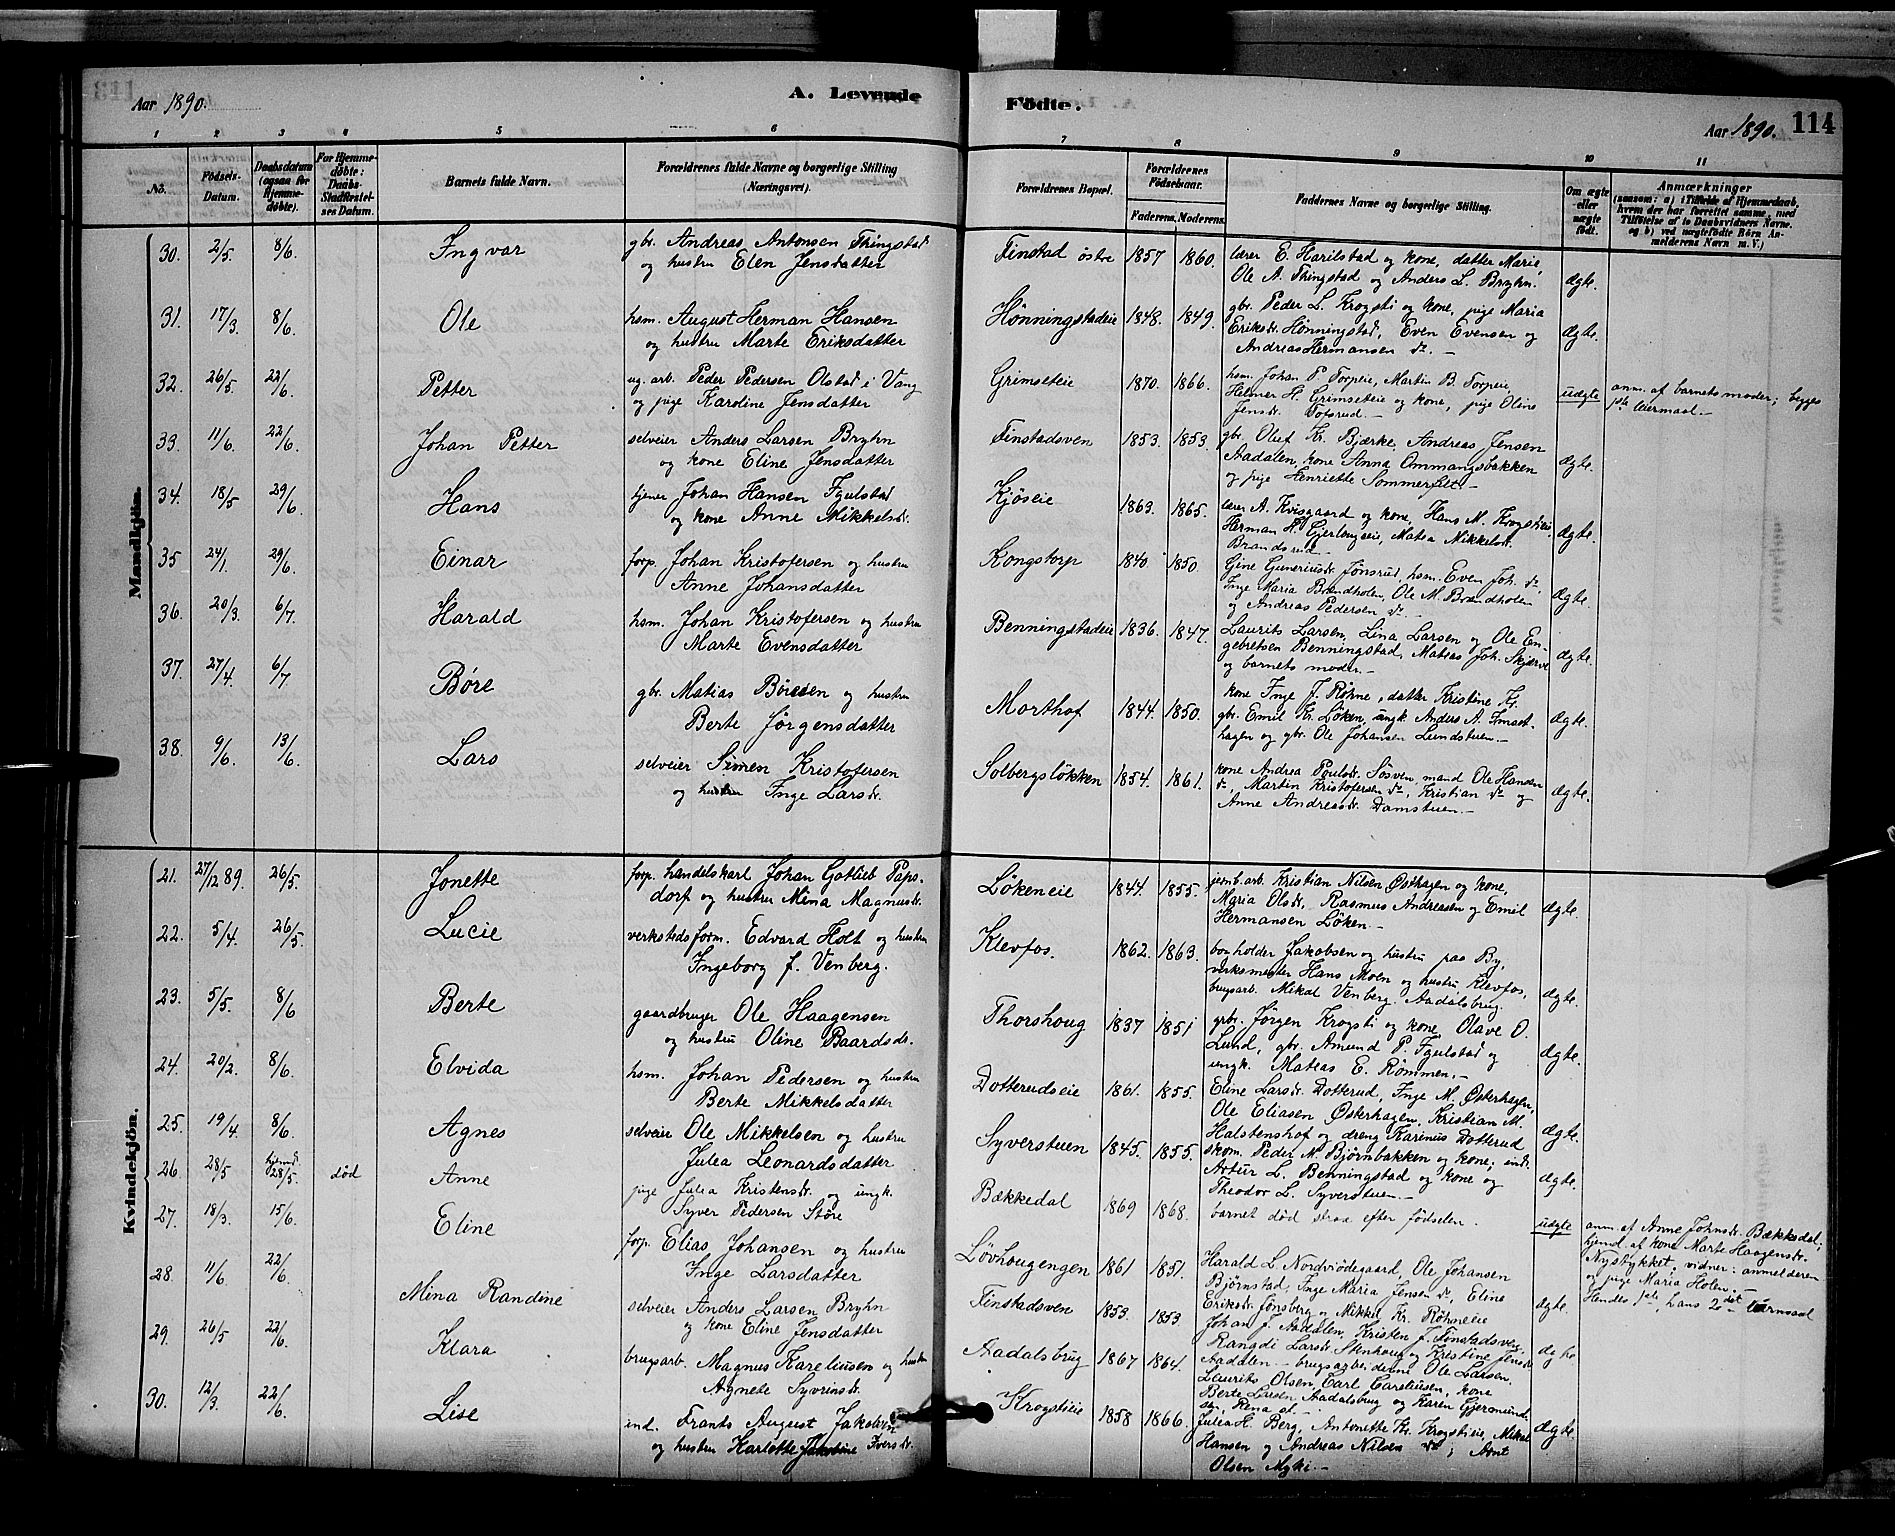 Aar 1890.
A. Levende
Födte.
Aar 1890.
114
1 2 3 4 5 6 7 8 9 10 11
No.
Födsels-
Datum.
Daabsdatum
(ogsaa for
Hjemme-
döbte).
For Hjemme-
döbte:
Daabs-
Stadfæstel-
ses Datum.
Barnets fulde Navn.
Forældrenes fulde Navne og borgerlige Stilling
(Næringsvei).
Forældrenes Bopæl.
Forældrenes
Födselsaar.
Faderens. Moderens.
Faddernes Navne og borgerlige Stilling.
Om ægte
eller
uægte
födt.
Anmærkninger
(saasom: a) i Tilfælde af Hjemmedaab,
hvem der har forrettet samme, med
Tilföielse af to Daabsvidners Navne.
og b) ved uægtefödte Börn An-
melderens Navn m. V.)
Mandkjön.
30. 2/5 8/6 Ingvar gbr. Andreas Antonsen Thingstad
og hustru Elen Jensdatter
Finstad östre 1857 1860. lærer E. Harilstad og kone, datter Marie,
Ole A. Thingstad og Anders L. Bryhn.
ægte.
31. 17/3 8/6 Ole hsm. August Herman Hansen
og hustru Marte Eriksdatter
Hönningstadeie 1848. 1849. gbr. Peder L. Krogsti og kone, pige Maria
Eriksdr. Hönningstad, Even Evensen og
Andreas Hermansen do. -
ægte.
32. 26/5 22/6 Petter ug. arb. Peder Pedersen Olstad i Vang
og pige Karoline Jensdatter
Grimseteie 1870. 1866. hsm. Johan P. Torpeie, Martin B. Torpeie,
Helmer H. Grimseteie og kone, pige Oline
Jensdr. Tofsrud. -
uægte anm. af barnets moder; begges
1ste leiermaal. -
33. 11/6. 22/6. Johan Petter selveier Anders Larsen Bryhn
og kone Eline Jensdatter
Finstadsven 1853. 1853 gbr. Oluf Kr. Bjærke, Andreas Jensen
Aadalen, kone Anna Ommangsbakken
og pige Henriette Sommerset. -
ægte.
34. 18/5 29/6. Hans tjener Johan Hansen Fjulstad
og kone Anne Mikkelsdr.
Kjöseie 1863. 1865. lærer A. Kvisgaard og kone, Hans M. Krogstieie,
Herman H. Gjerlaugeie, Matea Mikkelsdr.
Brandsrud. -
ægte.
35 24/1. 29/6. Einar forp. Johan Kristofersen og hustru
Anne Johansdatter
Kongstorp 1840 1850. Gine Gunerius dr. Jönsrud, hsm. Even Joh. do.
Inge Maria Brændholen, Ole M. Brændholen
og Andreas Pedersen do. -
ægte.
36. 20/3. 6/7. Harald hsm. Johan Kristofersen og hustru
Marte Evensdatter
Benningstadeie 1836. 1847. Laurits Larsen, Lina Larsen og Ole En-
gebretsen Benningstad, Mateas Joh. Skjærve
og barnets moder. -
ægte.
37. 27/4. 6/7 Böre gbr. MatiasBöresen og hustru
Berte Jörgensdatter
Morthof 1844. 1850. kone Inge J. Röhne, datter Kristine Kr.
gbr. Emil Kr. Löken, ungk. Anders A. Imset-
hagen og gbr. Ole Johansen Lundstuen. -
ægte.
38. 9/6. 13/6. Lars selveier Simen Kristofersen
og hustru Inge Larsdr.
Solbergslökken 1854. 1861. kone Andrea Poulsdr. Sösven, mand Ole Hansen
do., Martin Kristofersen do. Kristian do. og
Anne Andreasdr. Damstuen. -
ægte.
Kvindekjön.
21. 27/12 89. 26/5. Jonette forp. handelskarl Johan Gotlieb Paps-
dorf og hustru Mina Magnusdr.
Lökeneie 1844. 1855. jernb.arb. Kristian Nilsen Østhagen og kone,
Maria Olsdr., Rasmus Andreasen og Emil
Hermansen Löken. -
ægte.
22. 5/4. 26/5. Lucie verkstedsform. Edvard Holt og hustru
Ingeborg f. Venberg.
Klevfos. 1862. 1863. bogholder Jakobsen og hustru paa By,
verksmester Hans Moen og hustru Klevfos,
brugsarb. Mikal Venberg. Aadalsbrug.
ægte.
23. 5/5. 8/6 Berte gaardbruger Ole Haagensen
og hustru Oline Baardsdr.
Thorshoug 1837 1851 gbr. Jörgen Krogsti og kone, Olave O.
Lund, gbr. Amund P. Fjulstad og
ungk. Mateas E. Römmen. -
ægte.
24. 20/2. 8/6. Elvida hsm. Johan Pedersen og hustru
Berte Mikkelsdatter
Dotterudseie 1861. 1855. Eline Larsdr. Dotterud, Inge M. Østerhagen,
Ole Eliasen Østerhagen, Kristian M.
Halstenshof og dreng Karinus Dotterud
ægte.
25. 19/4. 8/6. Agnes selveier Ole Mikkelsen og hustru
Julea Leonardsdatter
Syverstuen 1845. 1855. skom. Peder M. Björnbakken og kone; ind.
Artur L. Benningstad og kone og
Theodor L. Syverstuen. -
ægte.
26. 28/5 hjemd. 28/5. död Anne pige Julea Kristensdr. og ungk.
Syver Pedersen Störe
Bækkedal 1869 1868. barnet död strax efter födselen.
uægte anm. af Anne Johnsdr. Bækkedal;
hjemd. af kone Marte Haagensdr.
Nystykket; vidner: anmelderen
og pige Maria Holen. -
Hendes 1ste, hans 2det leiermaal
27. 18/3. 15/6. Eline forp. Elias Johansen og hustru
Inge Larsdatter
Lövhougengen 1861 1851. Harald L. Nordviödegaard, Ole Johansen
Björnstad, Inge Maria Jensen do, Eline
Eriksdr. Jönsberg og Mikkel Kr. Röhneeie
ægte.
28. 11/6. 22/6. Mina Randine selveier Anders Larsen Bryhn
og kone Eline Jensdatter
Finstadsven 1853. 1853. Johan J. Aadalen, Kristen J. Finstadsveg,
Rangdi Larsdr. Stenhoug og Kristine Jensdr.
Aadalen. -
ægte
29. 26/5 22/6. Klara brugsarb. Magnus Kareliusen og hustru
Agnete Syvrinsdr.
Aadalsbrug 1867 1864. brugsarbeiderne Ole Larsen,
Laurits Olsen, Carl Careliusen, kone
Berte Larsen, Aadalsbrug og Karen Gjermund-
sen, Rena st. -
30. 12/3. 22/6. Lise ind. Frants August Jakobsen
og hustru Harlotte Iversdr.
Krogstieie 1858 1866. Julea H. Berg, Antonette Kr. Krogstieie, Mikal
Hansen og Andreas Nilsen do; Arnt
Olsen Myki. -
ægte.